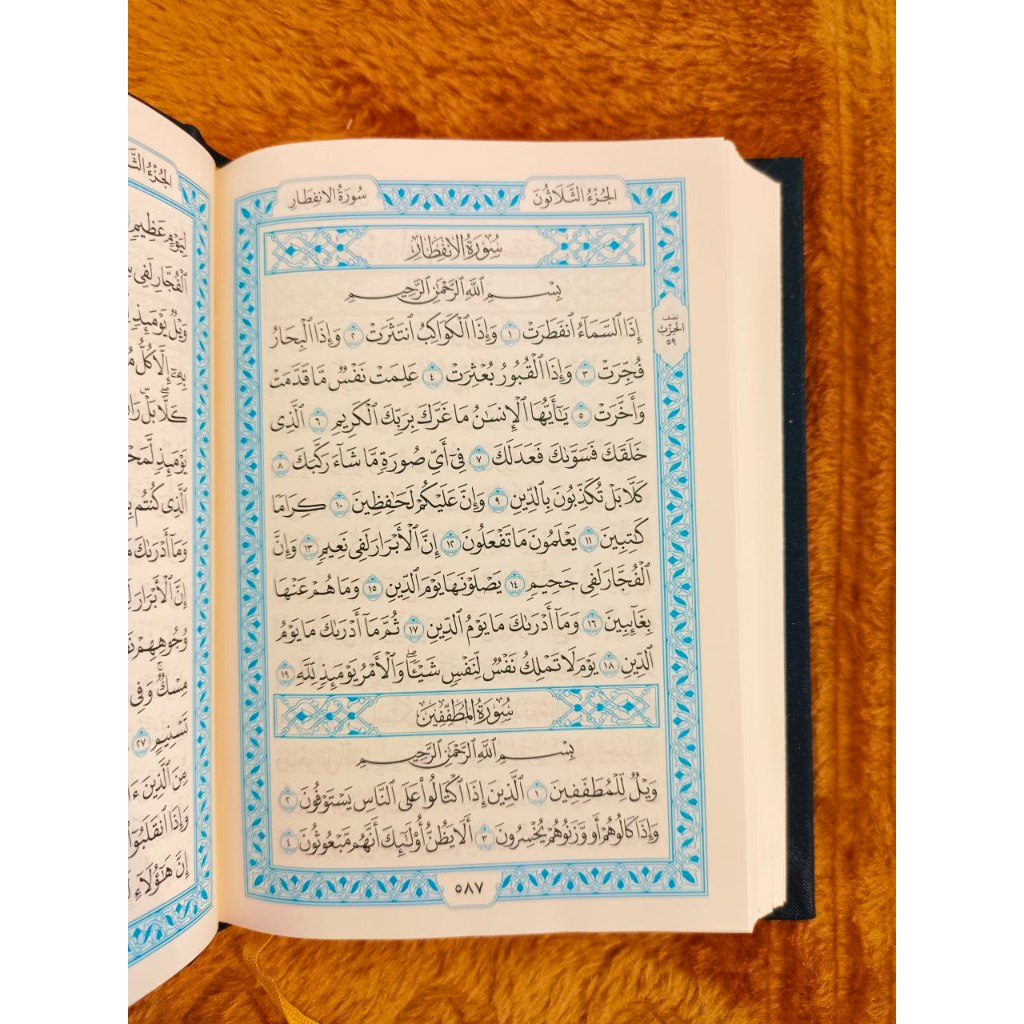 الجُزْءُ الثَّلَاثُونَ
سُورَةُ الانفِطَارِ
سُورَةُ الانفِطَارِ
بِسْمِ ٱللَّهِ ٱلرَّحْمَٰنِ ٱلرَّحِيمِ
إِذَا ٱلسَّمَآءُ ٱنفَطَرَتْ ١ وَإِذَا ٱلْكَوَاكِبُ ٱنتَثَرَتْ ٢ وَإِذَا ٱلْبِحَارُ
فُجِّرَتْ ٣ وَإِذَا ٱلْقُبُورُ بُعْثِرَتْ ٤ عَلِمَتْ نَفْسٌ مَّا قَدَّمَتْ
وَأَخَّرَتْ ٥ يَٰٓأَيُّهَا ٱلْإِنسَٰنُ مَا غَرَّكَ بِرَبِّكَ ٱلْكَرِيمِ ٦ ٱلَّذِى
خَلَقَكَ فَسَوَّىٰكَ فَعَدَلَكَ ٧ فِىٓ أَىِّ صُورَةٍ مَّا شَآءَ رَكَّبَكَ ٨
كَلَّا بَلْ تُكَذِّبُونَ بِٱلدِّينِ ٩ وَإِنَّ عَلَيْكُمْ لَحَٰفِظِينَ ١٠ كِرَامًا
كَٰتِبِينَ ١١ يَعْلَمُونَ مَا تَفْعَلُونَ ١٢ إِنَّ ٱلْأَبْرَارَ لَفِى نَعِيمٍ ١٣ وَإِنَّ
ٱلْفُجَّارَ لَفِى جَحِيمٍ ١٤ يَصْلَوْنَهَا يَوْمَ ٱلدِّينِ ١٥ وَمَا هُمْ عَنْهَا
بِغَآئِبِينَ ١٦ وَمَآ أَدْرَىٰكَ مَا يَوْمُ ٱلدِّينِ ١٧ ثُمَّ مَآ أَدْرَىٰكَ مَا يَوْمُ
ٱلدِّينِ ١٨ يَوْمَ لَا تَمْلِكُ نَفْسٌ لِّنَفْسٍ شَيْـًٔا ۖ وَٱلْأَمْرُ يَوْمَئِذٍ لِّلَّهِ ١٩
سُورَةُ المُطَفِّفِينَ
بِسْمِ ٱللَّهِ ٱلرَّحْمَٰنِ ٱلرَّحِيمِ
وَيْلٌ لِّلْمُطَفِّفِينَ ١ ٱلَّذِينَ إِذَا ٱكْتَالُوا۟ عَلَى ٱلنَّاسِ يَسْتَوْفُونَ ٢
وَإِذَا كَالُوهُمْ أَو وَّزَنُوهُمْ يُخْسِرُونَ ٣ أَلَا يَظُنُّ أُو۟لَٰٓئِكَ أَنَّهُم مَّبْعُوثُونَ ٤
٥٨٧
نصف
الحِزْب
٥٩
الجُزْءُ
لِيَوْمٍ عَظِيمٍ
ٱلْفُجَّارِ لَفِى
وَيْلٌ يَوْمَئِذٍ
بِهِۦٓ إِلَّا كُلُّ
كَلَّا ۖ بَلْ
يَوْمَئِذٍ
ٱلَّذِى كُنتُم
وَمَآ أَدْرَىٰكَ
إِنَّ ٱلْأَبْرَارَ
وُجُوهِهِمْ
مِسْكٌ ۚ وَفِى
تَسْنِيمٍ ٢٧
مِنَ ٱلَّذِينَ
وَإِذَا ٱنقَلَبُوٓا۟
إِنَّ هَٰٓؤُلَآءِ